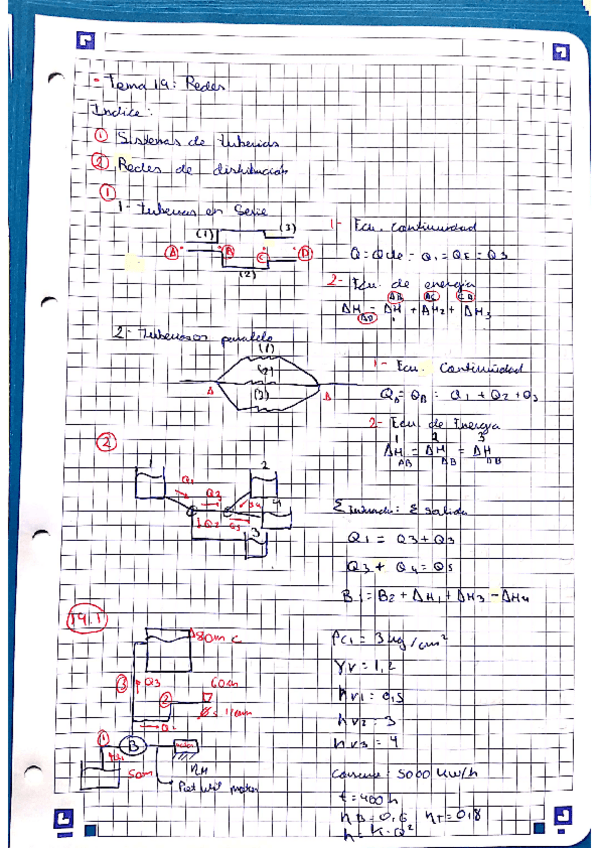 - Tema 19: Redes
Indice:
① Sistemas de tuberias
② Redes de distribución
①
1- tuberias en Serie
(1) (3)
A B C D
(2)
1- Ecu. continuidad
Q = Q1 = Q2 = Q3
2- Ecu. de energia
AB BC CD
ΔH = ΔH + ΔH2 + ΔH3
AD
2- Tuberias paralelo
(1)
(2)
(3)
A B
1- Ecu. Continuidad
QA = QB = Q1 + Q2 + Q3
2- Ecu. de Energia
1 2 3
ΔH = ΔH = ΔH
AB AB AB
②
1 2
Q1 Q3 4
Q2 Q5 3
Σ entrada: Σ salida
Q1 = Q3 + Q3
Q3 + Q4 = Q5
B1 = B2 + ΔH1 + ΔH3 - ΔH4
19.1
80m C
③ Q3 ② 60m
① B motor
50m
ηH
PC1 = 3 kg/cm²
γr = 1,2
hr1 = 0,5
hr2 = 3
hr3 = 4
5000 kw/h
t = 400 h
ηB = 0,6 ηT = 0,8
h = K · Q²